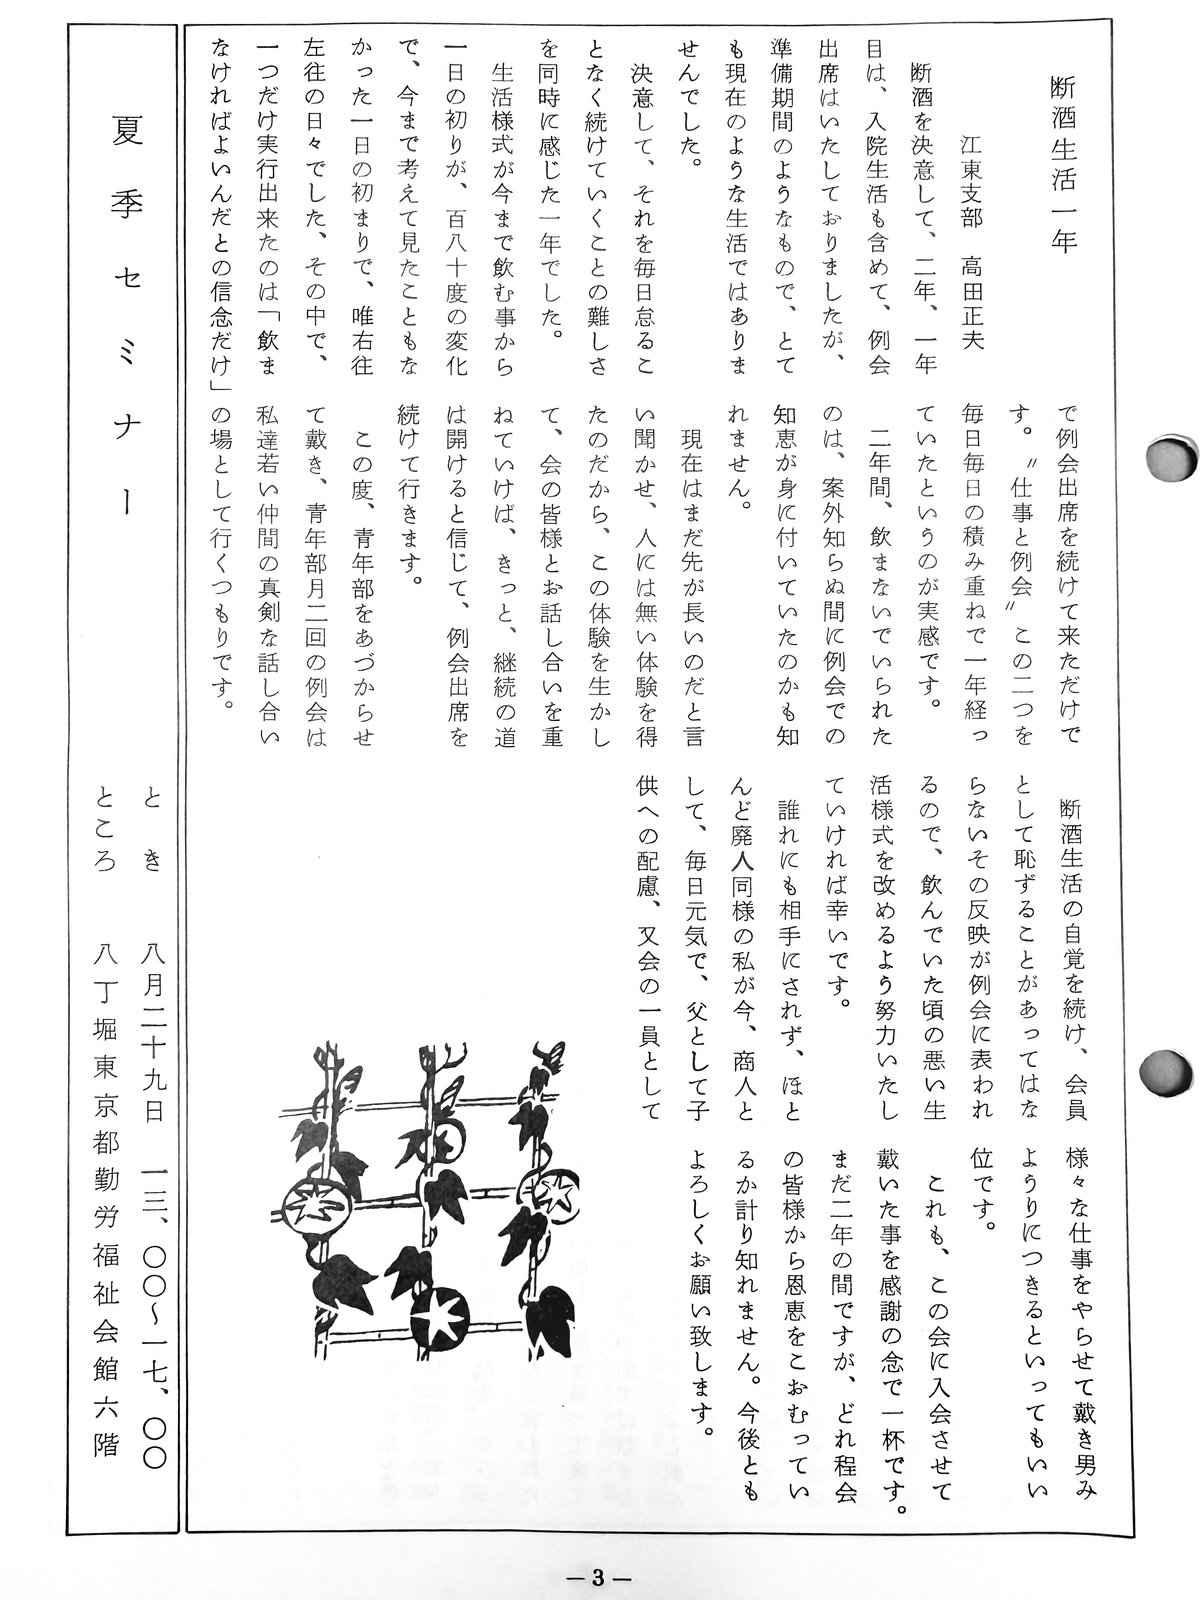 断酒生活一年
江東支部　高田正夫
断酒を決意して、二年、一年
目は、入院生活も含めて、例会
出席はいたしておりましたが、
準備期間のようなもので、とて
も現在のような生活ではありま
せんでした。
決意して、それを毎日怠るこ
となく続けていくことの難しさ
を同時に感じた一年でした。
生活様式が今まで飲む事から
一日の初りが、百八十度の変化
で、今まで考えて見たこともな
かった一日の初まりで、唯右往
左往の日々でした、その中で、
一つだけ実行出来たのは「飲ま
なければよいんだとの信念だけ」
で例会出席を続けて来ただけで
す。〝仕事と例会〟この二つを
毎日毎日の積み重ねで一年経っ
ていたというのが実感です。
二年間、飲まないでいられた
のは、案外知らぬ間に例会での
知恵が身に付いていたのかも知
れません。
現在はまだ先が長いのだと言
い聞かせ、人には無い体験を得
たのだから、この体験を生かし
て、会の皆様とお話し合いを重
ねていけば、きっと、継続の道
は開けると信じて、例会出席を
続けて行きます。
この度、青年部をあづからせ
て戴き、青年部月二回の例会は
私達若い仲間の真剣な話し合い
の場として行くつもりです。
断酒生活の自覚を続け、会員
として恥ずることがあってはな
らないその反映が例会に表われ
るので、飲んでいた頃の悪い生
活様式を改めるよう努力いたし
ていければ幸いです。
誰れにも相手にされず、ほと
んど廃人同様の私が今、商人と
して、毎日元気で、父として子
供への配慮、又会の一員として
様々な仕事をやらせて戴き男み
ようりにつきるといってもいい
位です。
これも、この会に入会させて
戴いた事を感謝の念で一杯です。
まだ二年の間ですが、どれ程会
の皆様から恩恵をこおむってい
るか計り知れません。今後とも
よろしくお願い致します。
夏季セミナー
とき　八月二十九日　一三、〇〇～一七、〇〇
ところ　八丁堀東京都勤労福祉会館六階
— 3 —